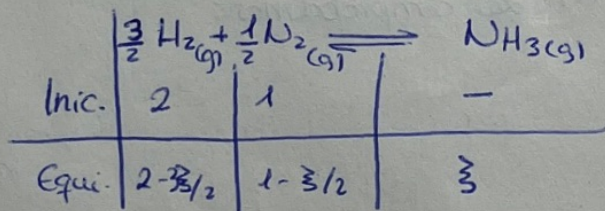 3/2 H₂(g) + 1/2 N₂(g) ⇌ NH₃(g)
Inic. 2 1 —
Equi. 2-3ξ/2 1-ξ/2 ξ